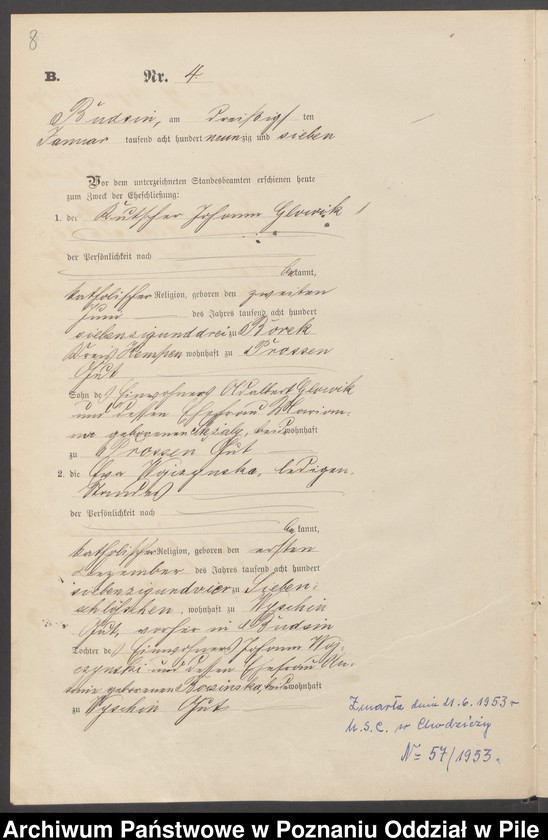 8
B. Nr. 4
Budsin, am dreißigsten
Januar tausend acht hundert neunzig und sieben
Vor dem unterzeichneten Standesbeamten erschienen heute
zum Zweck der Eheschließung:
1. der Kutscher Johann Glowik
der Persönlichkeit nach
bekannt,
katholischer Religion, geboren den zweiten
Juni des Jahres tausend acht hundert
siebenzigunddrei zu Borek
Kreis Kempen wohnhaft zu Prossen
Gut
Sohn des Einwohners Adalbert Glowik
und dessen Ehefrau Marian-
na geborenen wohnhaft
zu Prossen Gut
2. die Eva Wojczynska, ledigen
Standes
der Persönlichkeit nach
bekannt,
katholischer Religion, geboren den ersten
Dezember des Jahres tausend acht hundert
siebenzigundvier zu Sieben-
schlößchen, wohnhaft zu Wyschin
Gut, vorher in Budsin
Tochter des Einwohners Johann Woj-
czynski und dessen Ehefrau An-
geborenen wohnhaft
zu Wyschin Gut
Zmarła dnia 21.6.1953 r
U.S.C. w Chodzieży
Nr 57/1953.
Archiwum Państwowe w Poznaniu Oddział w Pile